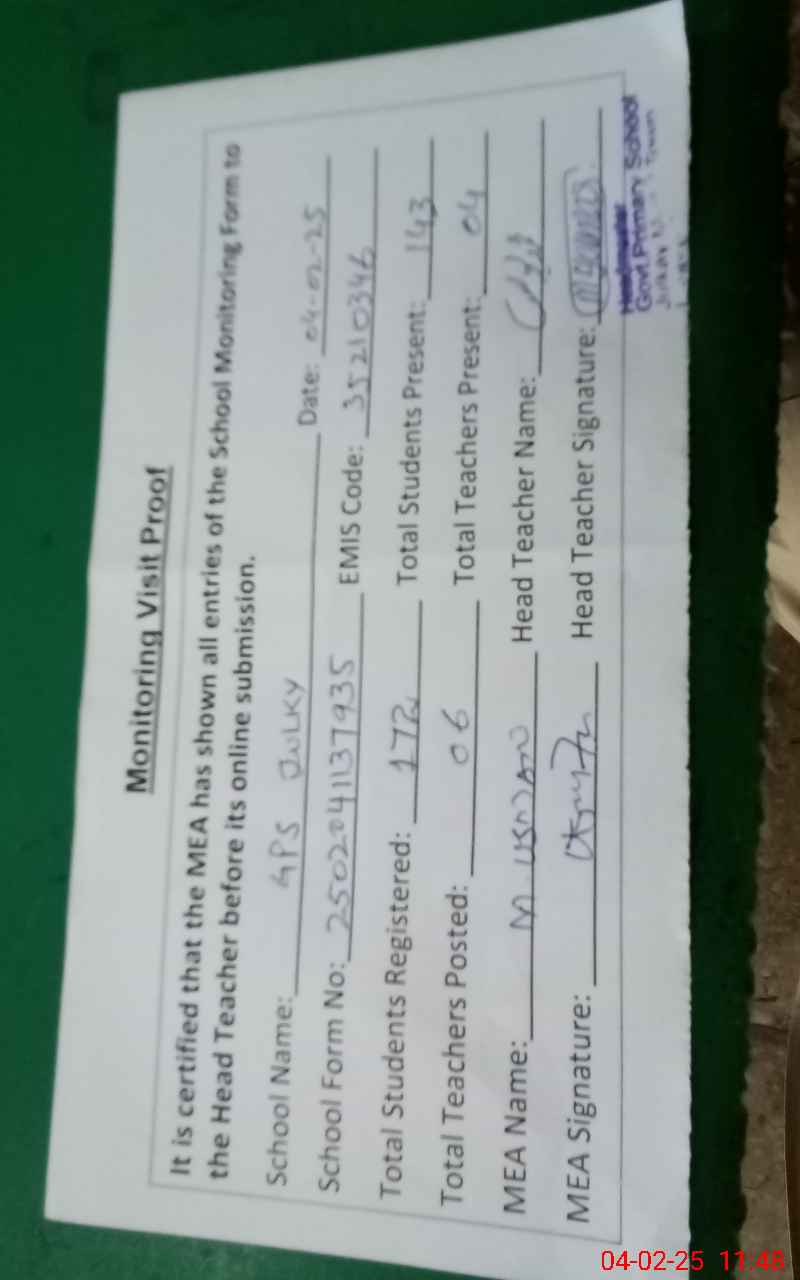 Monitoring Visit Proof
It is certified that the MEA has shown all entries of the School Monitoring Form to
the Head Teacher before its online submission.
School Name: GPS JULKY Date: 04-02-25
School Form No: 250204113793S EMIS Code: 35210346
Total Students Registered: 172 Total Students Present: 143
Total Teachers Posted: 06 Total Teachers Present: 04
MEA Name: M. USMAN Head Teacher Name:
MEA Signature: Head Teacher Signature:
Headmaster
Govt. Primary School
04-02-25 11:48